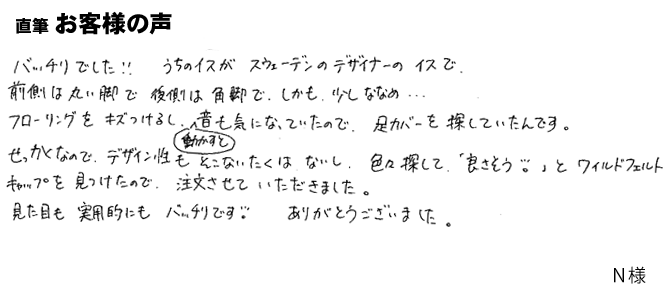 直筆 お客様の声
バッチリでした!! うちのイスが スウェーデンのデザイナーの イスで、
前側は丸い脚で 後側は 角脚で、しかも、少しななめ…
フローリングを キズつけるし、音も気になっていたので、足カバーを探していたんです。
動かすと
せっかくなので、デザイン性も そこないたくは ないし、色々探して、「良さそう」と ワイルドフェルト
キャップを見つけたので、注文させていただきました。
見た目も 実用的にも バッチリです ありがとうございました。
N様